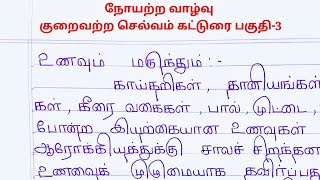 நோயற்ற வாழ்வு
குறைவற்ற செல்வம் கட்டுரை பகுதி-3
உணவும் மருந்தும்:
காய்கறிகள், தானியங்கள்
கள், கீரை வகைகள், பால், முட்டை,
போன்ற இயற்கையான உணவுகள்
ஆரோக்கியத்துக்கு சாலச் சிறந்தன
உணவைக் முழுமையாக தவிர்ப்பது